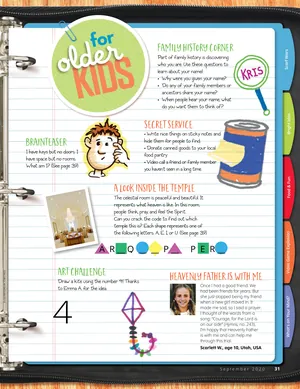 for
older
KIDS
FAMILY HISTORY CORNER
Part of family history is discovering
who you are. Use these questions to
learn about your name!
• Why were you given your name?
• Do any of your family members or
ancestors share your name?
• When people hear your name, what
do you want them to think of?
KRIS
SECRET SERVICE
• Write nice things on sticky notes and
hide them for people to find.
• Donate canned goods to your local
food pantry.
• Video call a friend or family member
you haven't seen in a long time.
BRAINTEASER
I have keys but no doors. I
have space but no rooms.
What am I? (See page 39)
A LOOK INSIDE THE TEMPLE
The celestial room is peaceful and beautiful. It
represents what heaven is like. In this room,
people think, pray, and feel the Spirit.
Can you crack the code to find out which
temple this is? Each shape represents one of
the following letters: A, E, I, or U. (See page 39)
ART CHALLENGE
Draw a kite using the number 4! Thanks
to Emma A. for the idea.
4
HEAVENLY FATHER IS WITH ME
Once I had a good friend. We
had been friends for years. But
she just stopped being my friend
when a new girl moved in. It
made me sad. I prayed and
I thought of the words from a
song: "Courage, for the Lord is
on our side" (Hymns, no. 243).
I'm happy that Heavenly Father
is with me and can help me
through this trial.
Scarlett W., age 10, Utah, USA
September 2020 31